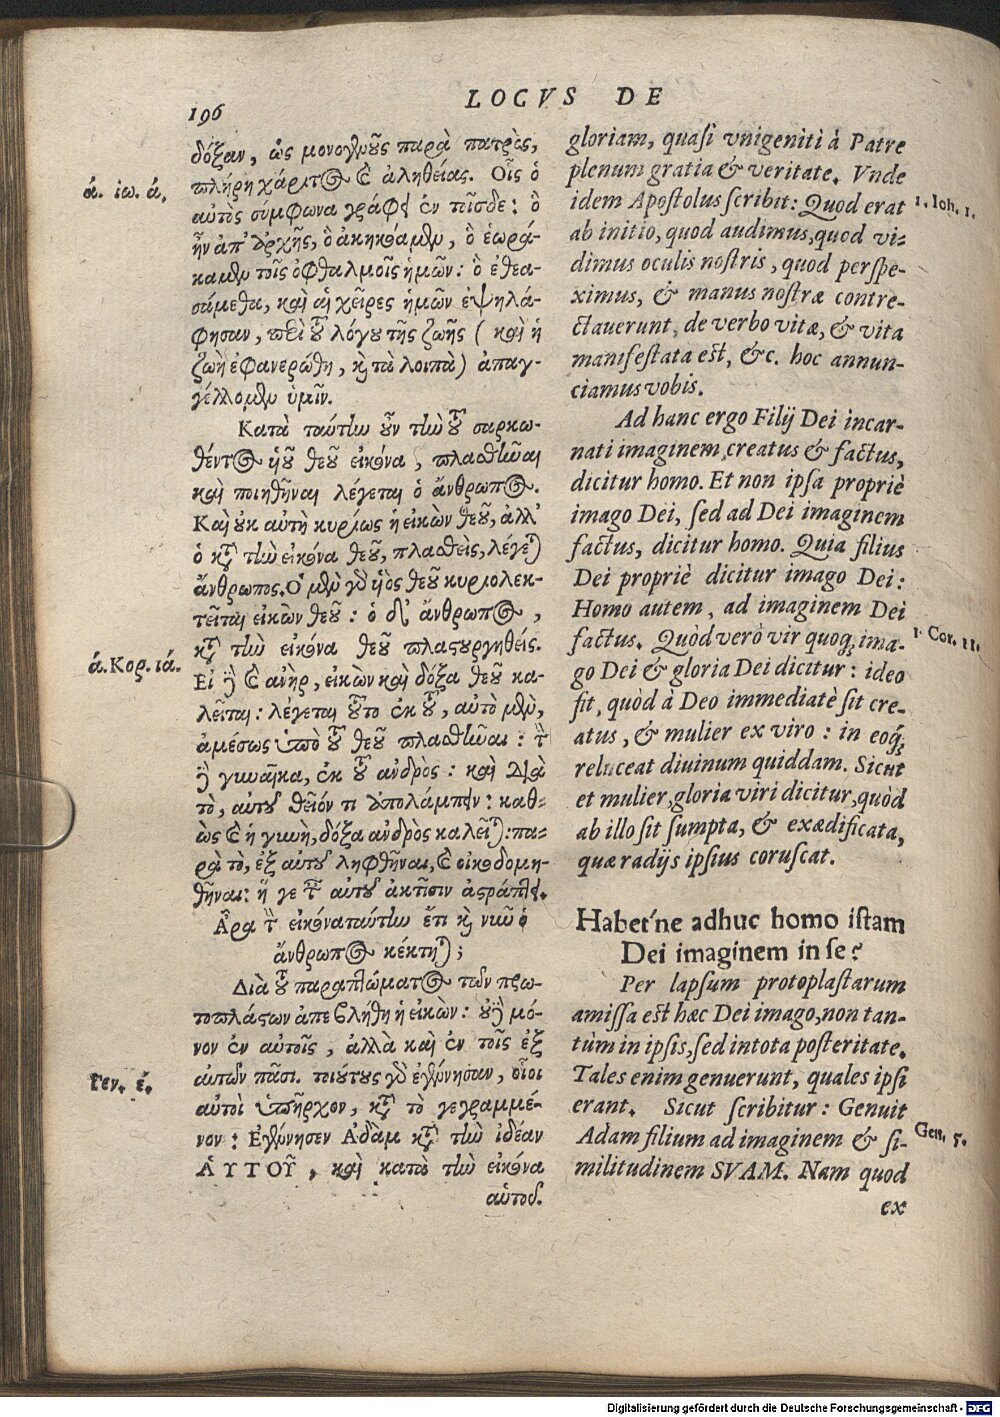 196
LOCVS DE
δόξαν, ὡς μονογενοῦς παρὰ πατρὸς,
πλήρη χάριτος καὶ ἀληθείας. Οἷς ὁ
ἀ. ἰω. ἀ.
αὐτὸς σύμφωνα γράφει ἐν τοῖσδε: ὃ
ἦν ἀπ' ἀρχῆς, ὃ ἀκηκόαμεν, ὃ ἑωρά-
καμεν τοῖς ὀφθαλμοῖς ἡμῶν: ὃ ἐθεα-
σάμεθα, καὶ αἱ χεῖρες ἡμῶν ἐψηλά-
φησαν, περὶ τοῦ λόγου τῆς ζωῆς ( καὶ ἡ
ζωὴ ἐφανερώθη, καὶ τὰ λοιπὰ) ἀπαγ-
γέλλομεν ὑμῖν.
Κατὰ ταύτην οὖν τὴν τοῦ σαρκω-
θέντος υἱοῦ θεοῦ εἰκόνα, πλασθῆναι
καὶ ποιηθῆναι λέγεται ὁ ἄνθρωπος.
Καὶ οὐκ αὐτὴ κυρίως ἡ εἰκὼν θεοῦ, ἀλλ'
ὁ κατὰ τὴν εἰκόνα θεοῦ, πλασθεὶς, λέγεται
ἄνθρωπος. Ὁ μὲν γὰρ υἱὸς θεοῦ κυριολεκ-
τεῖται εἰκὼν θεοῦ: ὁ δ' ἄνθρωπος,
κατὰ τὴν εἰκόνα θεοῦ πλαστουργηθείς.
ἀ. Κορ. ιά.
Εἰ δὲ καὶ ἀνὴρ, εἰκὼν καὶ δόξα θεοῦ κα-
λεῖται: λέγεται τοῦτο ἐκ τοῦ, αὐτὸ μὲν,
ἀμέσως ὑπὸ τοῦ θεοῦ πλασθῆναι: τὴν
δὲ γυναῖκα, ἐκ τοῦ ἀνδρὸς: καὶ διὰ
τὸ, αὐτοῦ θεῖόν τι ἀπολάμπειν: καθ-
ὼς καὶ ἡ γυνὴ, δόξα ἀνδρὸς καλεῖται: πα-
ρὰ τὸ, ἐξ αὐτοῦ ληφθῆναι, καὶ οἰκοδομη-
θῆναι: ἥ γε ταῖς αὐτοῦ ἀκτῖσιν ἀστράπτει.
Ἆρα τὴν εἰκόνα ταύτην ἔτι καὶ νῦν ὁ
ἄνθρωπος κέκτηται;
Διὰ τοῦ παραπτώματος τῶν πρω-
τοπλάστων ἀπεβλήθη ἡ εἰκὼν: οὐ δὲ μό-
νον ἐν αὐτοῖς, ἀλλὰ καὶ ἐν τοῖς ἐξ
Γεν. έ.
αὐτῶν πᾶσι. τοιούτους γὰρ ἐγέννησαν, οἷοι
αὐτοὶ ὑπῆρχον, κατὰ τὸ γεγραμμέ-
νον: Ἐγέννησεν Ἀδὰμ κατὰ τὴν ἰδέαν
ΑΥΤΟΥ͂, καὶ κατὰ τὴν εἰκόνα
αὐτοῦ.
gloriam, quasi vnigeniti à Patre
plenum gratia & veritate. Vnde
idem Apostolus scribit: Quod erat
1. Ioh. 1.
ab initio, quod audimus, quod vi-
dimus oculis nostris, quod perspe-
ximus, & manus nostræ contre-
ctauerunt, de verbo vitæ, & vita
manifestata est, &c. hoc annun-
ciamus vobis.
Ad hanc ergo Filij Dei incar-
nati imaginem creatus & factus,
dicitur homo. Et non ipsa propriè
imago Dei, sed ad Dei imaginem
factus, dicitur homo. Quia filius
Dei propriè dicitur imago Dei:
Homo autem, ad imaginem Dei
factus. Quòd verò vir quoq; ima-
1. Cor. 11.
go Dei & gloria Dei dicitur: ideo
fit, quòd à Deo immediatè sit cre-
atus, & mulier ex viro: in eoq;
reluceat diuinum quiddam. Sicut
et mulier, gloria viri dicitur, quòd
ab illo sit sumpta, & exædificata,
quæ radijs ipsius coruscat.
Habet'ne adhuc homo istam
Dei imaginem in se?
Per lapsum protoplastarum
amissa est hæc Dei imago, non tan-
tùm in ipsis, sed in tota posteritate.
Tales enim genuerunt, quales ipsi
erant. Sicut scribitur: Genuit
Adam filium ad imaginem & si-
Gen. 5.
militudinem SVAM. Nam quod
ex
Digitalisierung gefördert durch die Deutsche Forschungsgemeinschaft - DFG